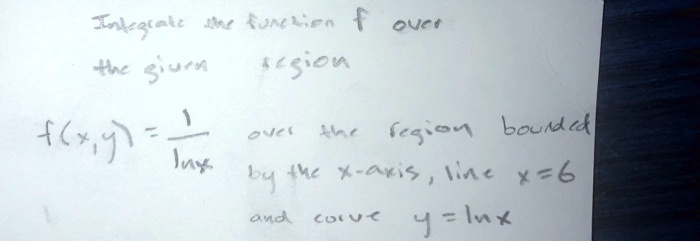 Integrate the function f over
the given region
f(x,y) = 1/lnx over the region bounded
by the x-axis, line x=6
and curve y = lnx